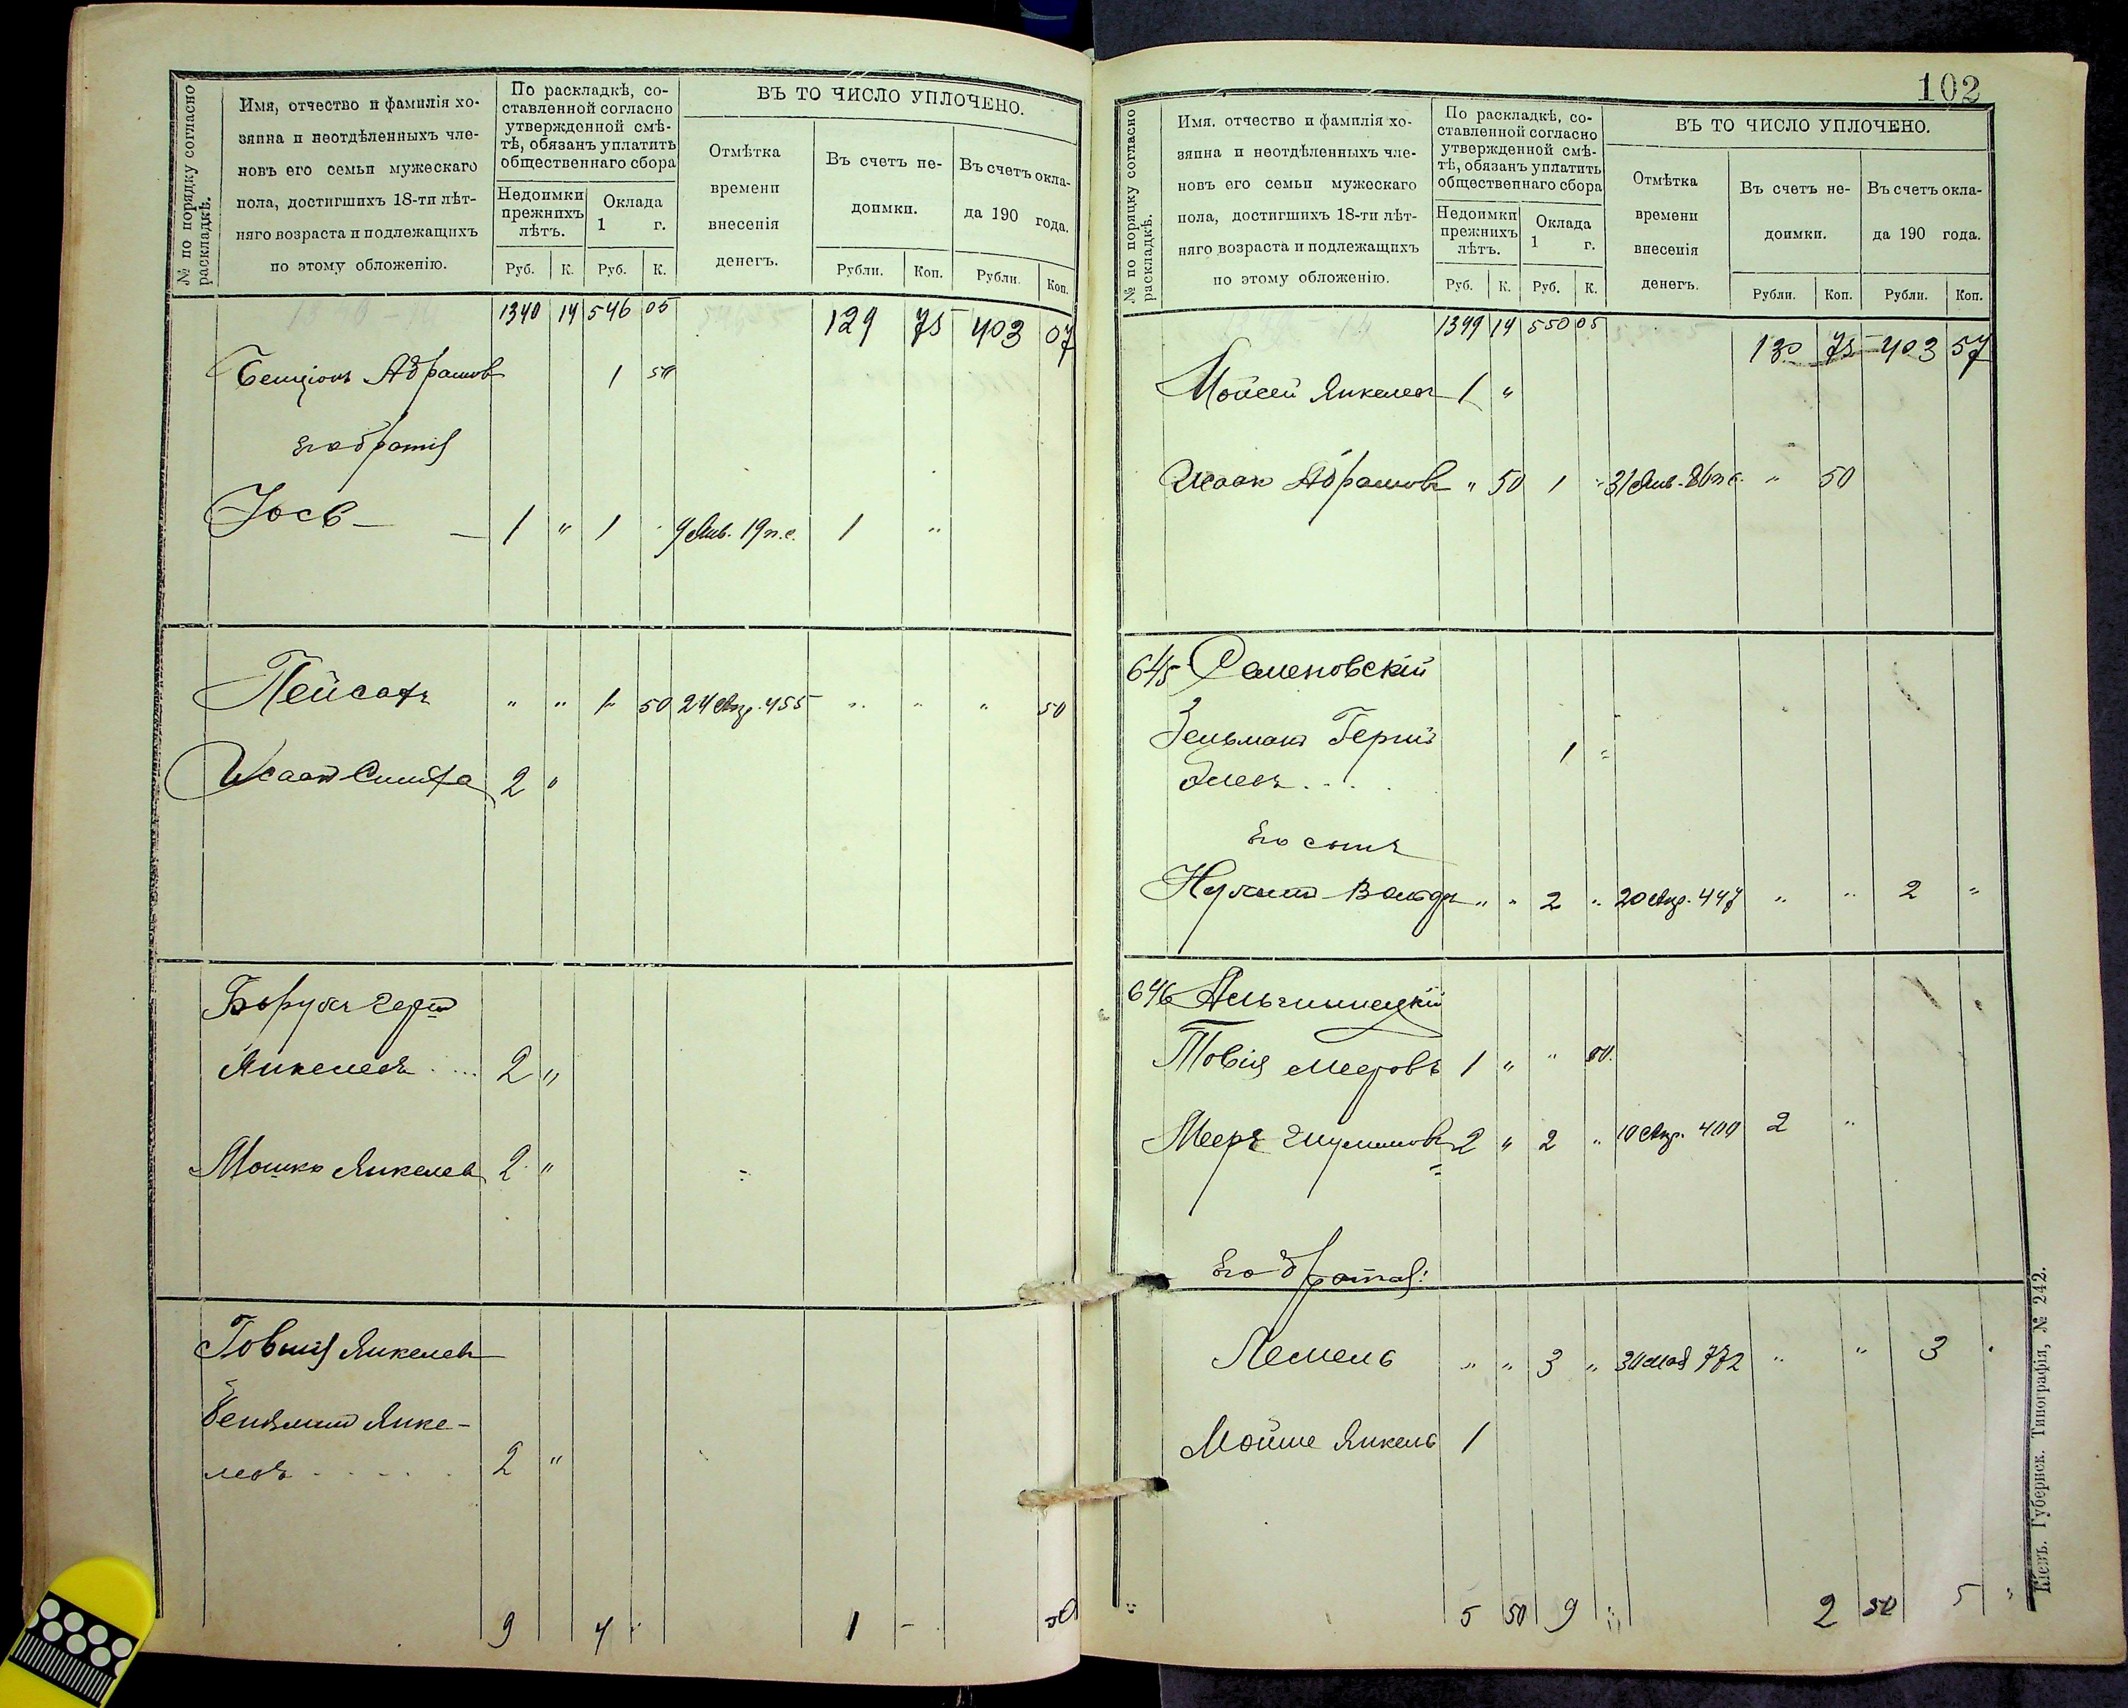 № по порядку согласно раскладкѣ.
Имя, отчество и фамилія хо-
зяина и неотдѣленныхъ чле-
новъ его семьи мужескаго
пола, достигшихъ 18-ти лѣт-
няго возраста и подлежащихъ
по этому обложенію.
По раскладкѣ, со-
ставленной согласно
утвержденной смѣ-
тѣ, обязанъ уплатить
общественнаго сбора
Недоимки
прежнихъ
лѣтъ.
Оклада
1 г.
Руб. К. Руб. К.
ВЪ ТО ЧИСЛО УПЛОЧЕНО.
Отмѣтка
времени
внесенія
денегъ.
Въ счетъ не-
доимки.
Рубли. Коп.
Въ счетъ окла-
да 190 года.
Рубли. Коп.
1340 14 546 05 129 75 403 07
Бенціонъ Абрамов 1 50
его братія
Іосъ — 1 " 1 9 Янв. 19 п.с. 1 "
Пейсахъ " " 1 50 24 Апр. 455 " " " 50
Исаакъ Симха 2 "
Борухъ Герш
Янкелевъ 2 "
Мошко Янкелев 2 "
Товшія Янкелев
Беніяминъ Янке-
левъ 2 "
9 4 1 - 50
102
№ по порядку согласно раскладкѣ.
Имя, отчество и фамилія хо-
зяина и неотдѣленныхъ чле-
новъ его семьи мужескаго
пола, достигшихъ 18-ти лѣт-
няго возраста и подлежащихъ
по этому обложенію.
По раскладкѣ, со-
ставленной согласно
утвержденной смѣ-
тѣ, обязанъ уплатить
общественнаго сбора
Недоимки
прежнихъ
лѣтъ.
Оклада
1 г.
Руб. К. Руб. К.
ВЪ ТО ЧИСЛО УПЛОЧЕНО.
Отмѣтка
времени
внесенія
денегъ.
Въ счетъ не-
доимки.
Рубли. Коп.
Въ счетъ окла-
да 190 года.
Рубли. Коп.
1349 14 550 05 130 75 403 57
Мойсей Янкелев 1 "
Исаак Абрамовъ " 50 1 " 31 Янв. " 50
645 Семеновскій
Зельманъ Герш
1 "
Его сынъ
" " 2 " 20 Апр. 447 " " 2 "
646
Товія Мееровъ 1 " "
Мееръ Шулимовъ 2 " 2 " 10 Апр. 400 2 "
Его братья:
Лемель " " 3 " 30 Мая 772 " " 3
Мойше Янкель 1
5 50 9 " 2 50 5 "
Кіевъ. Губернск. Типографія, № 242.